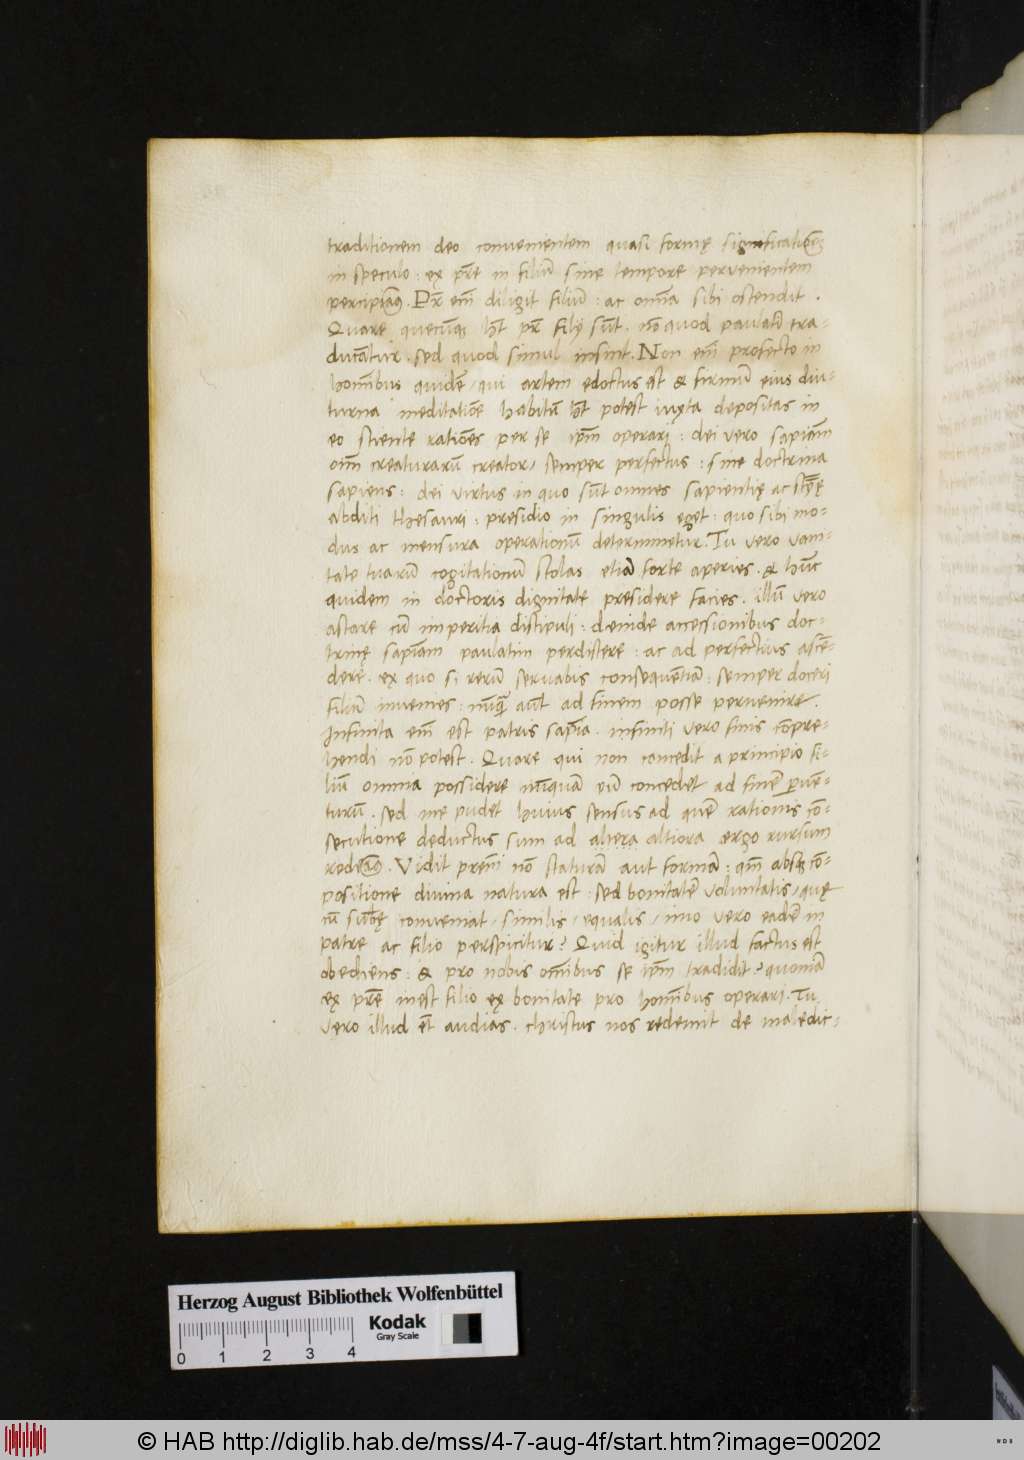 traditionem deo convenientem quasi formę significationẽ
in speculo : ex pr̃e in filiũ sine tempore pervenientem
percipiãq. Pr̃ em̃ diligit filiũ : ac om̃a sibi ostendit .
Quare quecũq; h̃t pr̃ filÿ sũt . nõ quod paulati tra-
ducãtur . sed quod simul insint . Non em̃ profecto in
homĩbus quidẽ / qui artem edoctus est & firmũ eius diu-
turna meditatiõe habitũ h̃t potest iuxta depositas in
eo sciente ratiões per se ip̃m operari : dei vero sapiam̃
om̃ creaturarũ creator / semper perfectus : sine doctrina
sapiens : dei virtus in quo sũt omnes sapientię ac
abditi thesauri : presidio in singulis eget : quo sibi mo-
dus ac mensura operationũ determinetur . Tu vero vani-
tate tuarũ cogitationũ scolas etiã forte aperies . & hũc
quidem in doctoris dignitate presidere facies . illũ vero
astare cũ imperitia discipuli : deinde accessionibus doc-
trinę sapiam̃ paulatim perdiscere : ac ad perfectius ascẽ-
dere . ex quo si rerũ servabis consequẽtiã : semper doceri
filiũ invenies : nũquã aũt ad finem posse pervenire .
Infinita em̃ est patris sapĩa . infiniti vero finis cõpre-
hendi nõ potest . Quare qui non concedit a principio fi-
liũ omnia possidere nunquã eũ concedet ad finẽ pvẽ-
turũ . sed me pudet huius sensus ad quẽ rationis cõ-
secutione deductus sum ad altera altiora ergo rursum
redeão . Vidit prem̃ nõ staturã aut formã : qm̃ absq; cõ-
positione divina natura est : sed bonitatẽ voluntatis / quę
cũ subę conveniat / similis / equalis / imo vero eadẽ in
patre ac filio perspicitur ? Quid igitur illud factus est
obediens : & pro nobis om̃ibus se ip̃m tradidit ? quoniã
ex pr̃e inest filio ex bonitate pro homĩbus operari . Tu
vero illud et̃ audias . christus nos redemit de maledic-
Herzog August Bibliothek Wolfenbüttel
Kodak
Gray Scale
0 1 2 3 4
© HAB http://diglib.hab.de/mss/4-7-aug-4f/start.htm?image=00202